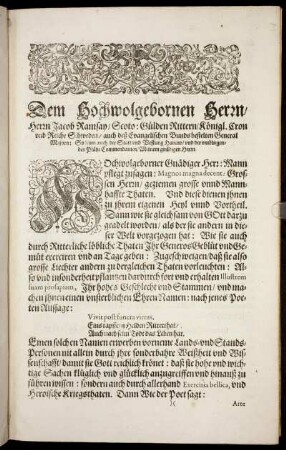 Dem Hochwolgebornen Herrn/
Herrn Jacob Ramsay/ Scoto: Gülden Rittern/ Königl. Cron
und Reiche Schweden/ auch deß Evangelischen Bunds bestelten General
Majorn: So dann auch der Stadt und Vestung Hanaw/ und der
Commendanten/ Meinem gnädigen Herrn
Hochwolgeborner Gnädiger Herr: Mann
pflegt zusagen: Magnos magna decent. Gros-
sen Herrn/ geziemen grosse unnd Mann-
haffte Thaten. Und diese dienen jhnen
zu jhrem eigenen Heyl unnd Vortheil.
Dann wie sie gleichsam von GOtt darzu
geadelt worden/ als der sie andern in die-
ser Welt vorgezogen hat: Wie sie auch
durch Ritterliche löbliche Thaten Ihr Generos Geblüt und Ge-
müt exerciren und an Tag geben: Zugeschweigen/ daß sie also
grosse Liechter andern zu dergleichen Thaten vorleuchten: Al-
so und insonderheit pflantzen
suam prosapiam, Ihr hohes Geschlecht und Stammen/ und ma-
chen jhnen einen unsterblichen Ehren Namen: nach jenes Poe-
ten Aussage:
Vivit post funera virtus,
Eins tapffern Helden Ritterthat/
Auch nach seim Tod das Leben hat.
Einen solchen Namen erwerben vorneme Lands- und Stands-
Personen nit allein durch jhre sonderbahre Weißheit und Wis-
senschafft/ damit sie Gott reichlich krönet: daß sie hohe und wich-
tige Sachen klüglich und glücklich anzugreiffen und hinauß zu
führen wissen: sondern auch durch allerhand Exercitia bellica, und
Heroische Kriegsthaten. Dann Wie der Poet sagt:
)(
Arte